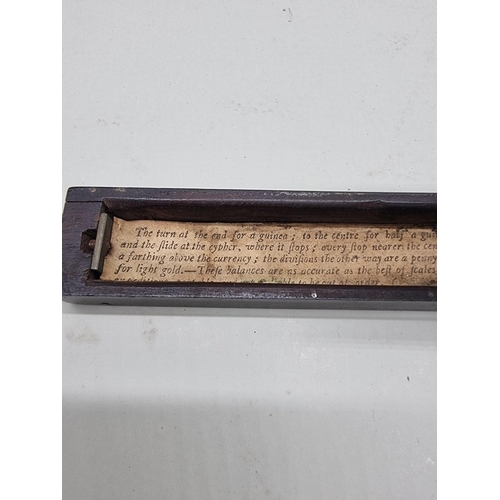 The turn at the end for a guinea ; to the centre for half a gui
and the ſlide at the cypher, where it ſtops ; every ſtop nearer the cen
a farthing above the currency ; the diviſions the other way are a penny
for light gold.—Theſe balances are as accurate as the beſt of ſcales
to be out of order